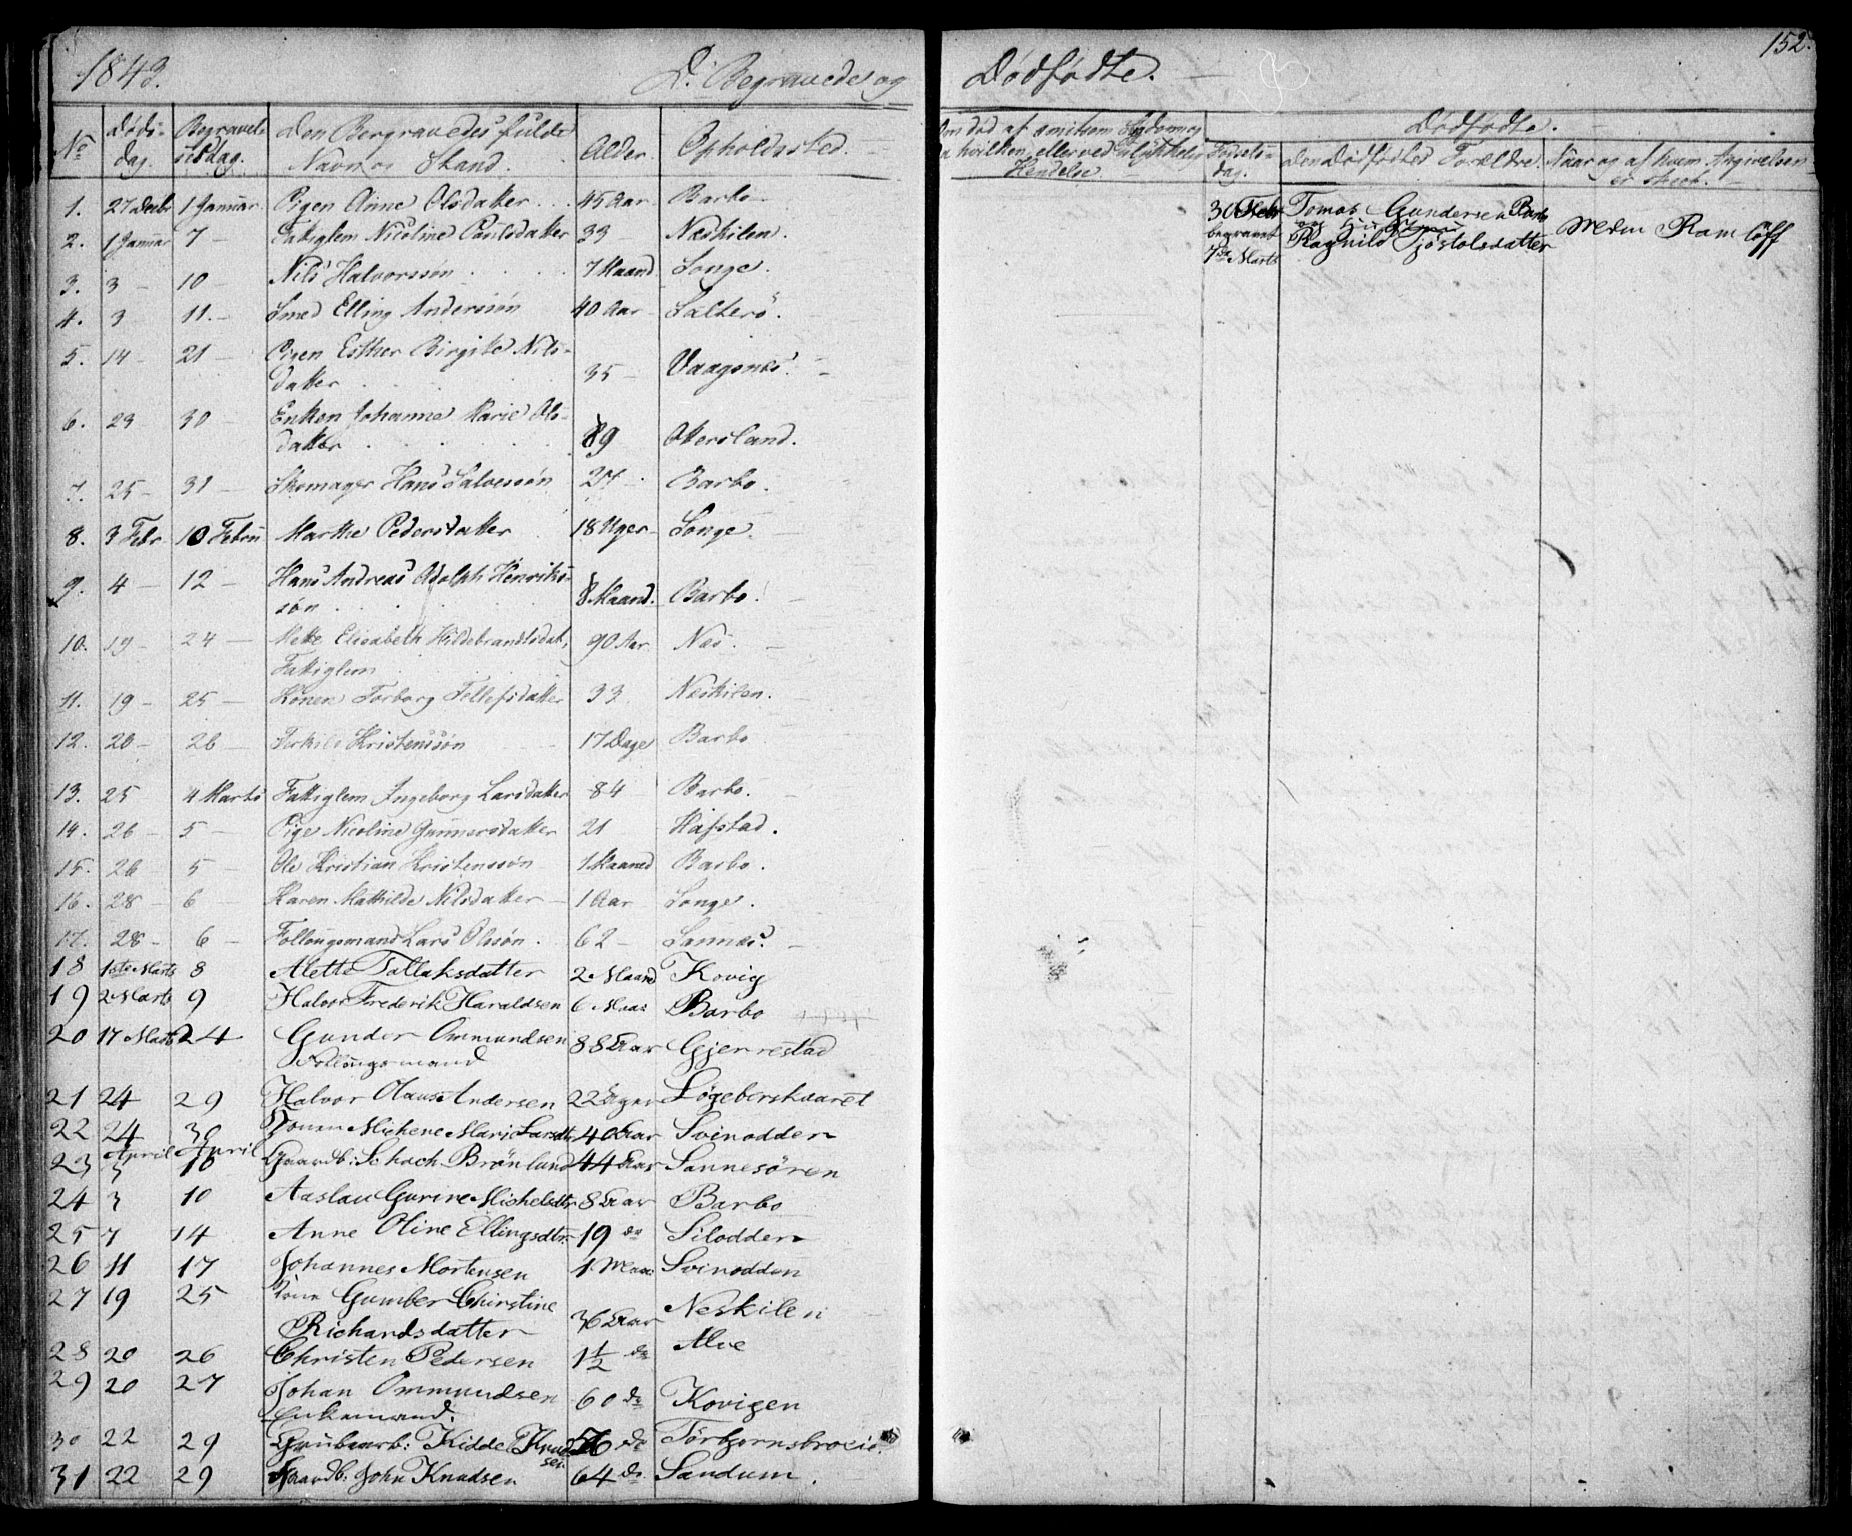 1843.
D. Begravede og Dødfødte.
152.
No Døds-dag. Begravelsesdag. Den Bergravedes fulde Navn og Stand. Alder. Opholdssted.
Dødfødte.
Fødsels-dag. Den Dødfødtes Forældre. Naar og af hvem Angivelsen er skeet.
1. 27 Decbr 1 Januar Pigen Anne Olsdatter 45 Aar Barbo
2. 1 Januar 7 Fattiglem Nicoline Poulsdatter 33 Neskilen.
3. 3 10 Nils Halvorssøn 7 Maand Songe.
4. 3 11. Smed Elling Anderssøn 40 Aar Salterö.
5. 14 21 Pigen Esther Birgitte Nils-
datter 35 Vaagsnes.
6. 23 30 Enken Johanne Marie Ols-
datter 89 Ottersland.
7. 25 31 Skomager Hans Salvessøn 27 Barbo.
8. 3 Febr 10 Febru Marthe Pedersdatter 18 Uger Songe.
9. 4 12 Hans Andreas Adolph Henriks-
søn 8 Maand. Barbo.
10. 19 24 Mette Elisabeth Hildebrandtsdat,
Fattiglem 90 Aar Nes.
11. 19 25 Konen Torborg Tellefsdatter 33 Neskilen.
12. 20 26 Terkild Kristenssøn 17 Dage Barbo
13. 25 4 Marts Fattiglem Ingeborg Larsdatter 84 Barbo.
14. 26 5 Pige Nicoline Gunnersdatter 21 Hafstad.
15. 26 5 Ole Kristian Kristenssøn 1 Maaned Barbo.
16. 28 6 Karen Mathilde Nilsdatter 1 Aar Songe.
17. 28 6 Follougsmand Lars Olssøn. 62 Sannes.
18 1ste Marts 8 Alette Tallaksdatter 2 Maand Kovig
19 2 Marts 9 Halvor Frederik Haraldsen 6 Maan Barbo
20 17 Marts 24 Gunder Ommundsen 88 Aar Gjerrestad
Follougsmand
21 24 29 Halvor Olaus Andersen 22 Uger Løgeberskaaret
22 24 30 Konen Michene Marie Larsdtr 40 Aar Svinodden
April April
23 3 10 Gaardb: Schach Brönlund 44 Aar Sannesören
24 3 10 Aaslau Gurine Michelsdtr 8 Aar Barbo
25 7 14 Anne Oline Ellingsdtr 19 do Silodden
26 11 17 Johannes Mortensen 1 Maan Svinodden
27 19 25 Kone Gumber Chirstine
Richardsdatter 36 Aar Neskilen
28 20 26 Christen Pedersen 1 1/2 do Alve
29 20 27 Johan Ommundsen 60 do Kovigen
Enkemand.
30 22 29 Grubearb: Kidde Knud
sen 56 do Törbjørnsbroeie
31 22 29 Gaardb: John Knudsen 64 do Sandum.
30 Febr
begravet
7de Marts
Tomas Gundersen Barbo
og Hustrue
Ragnild Tjøstolsdatter
Meden Ramløff